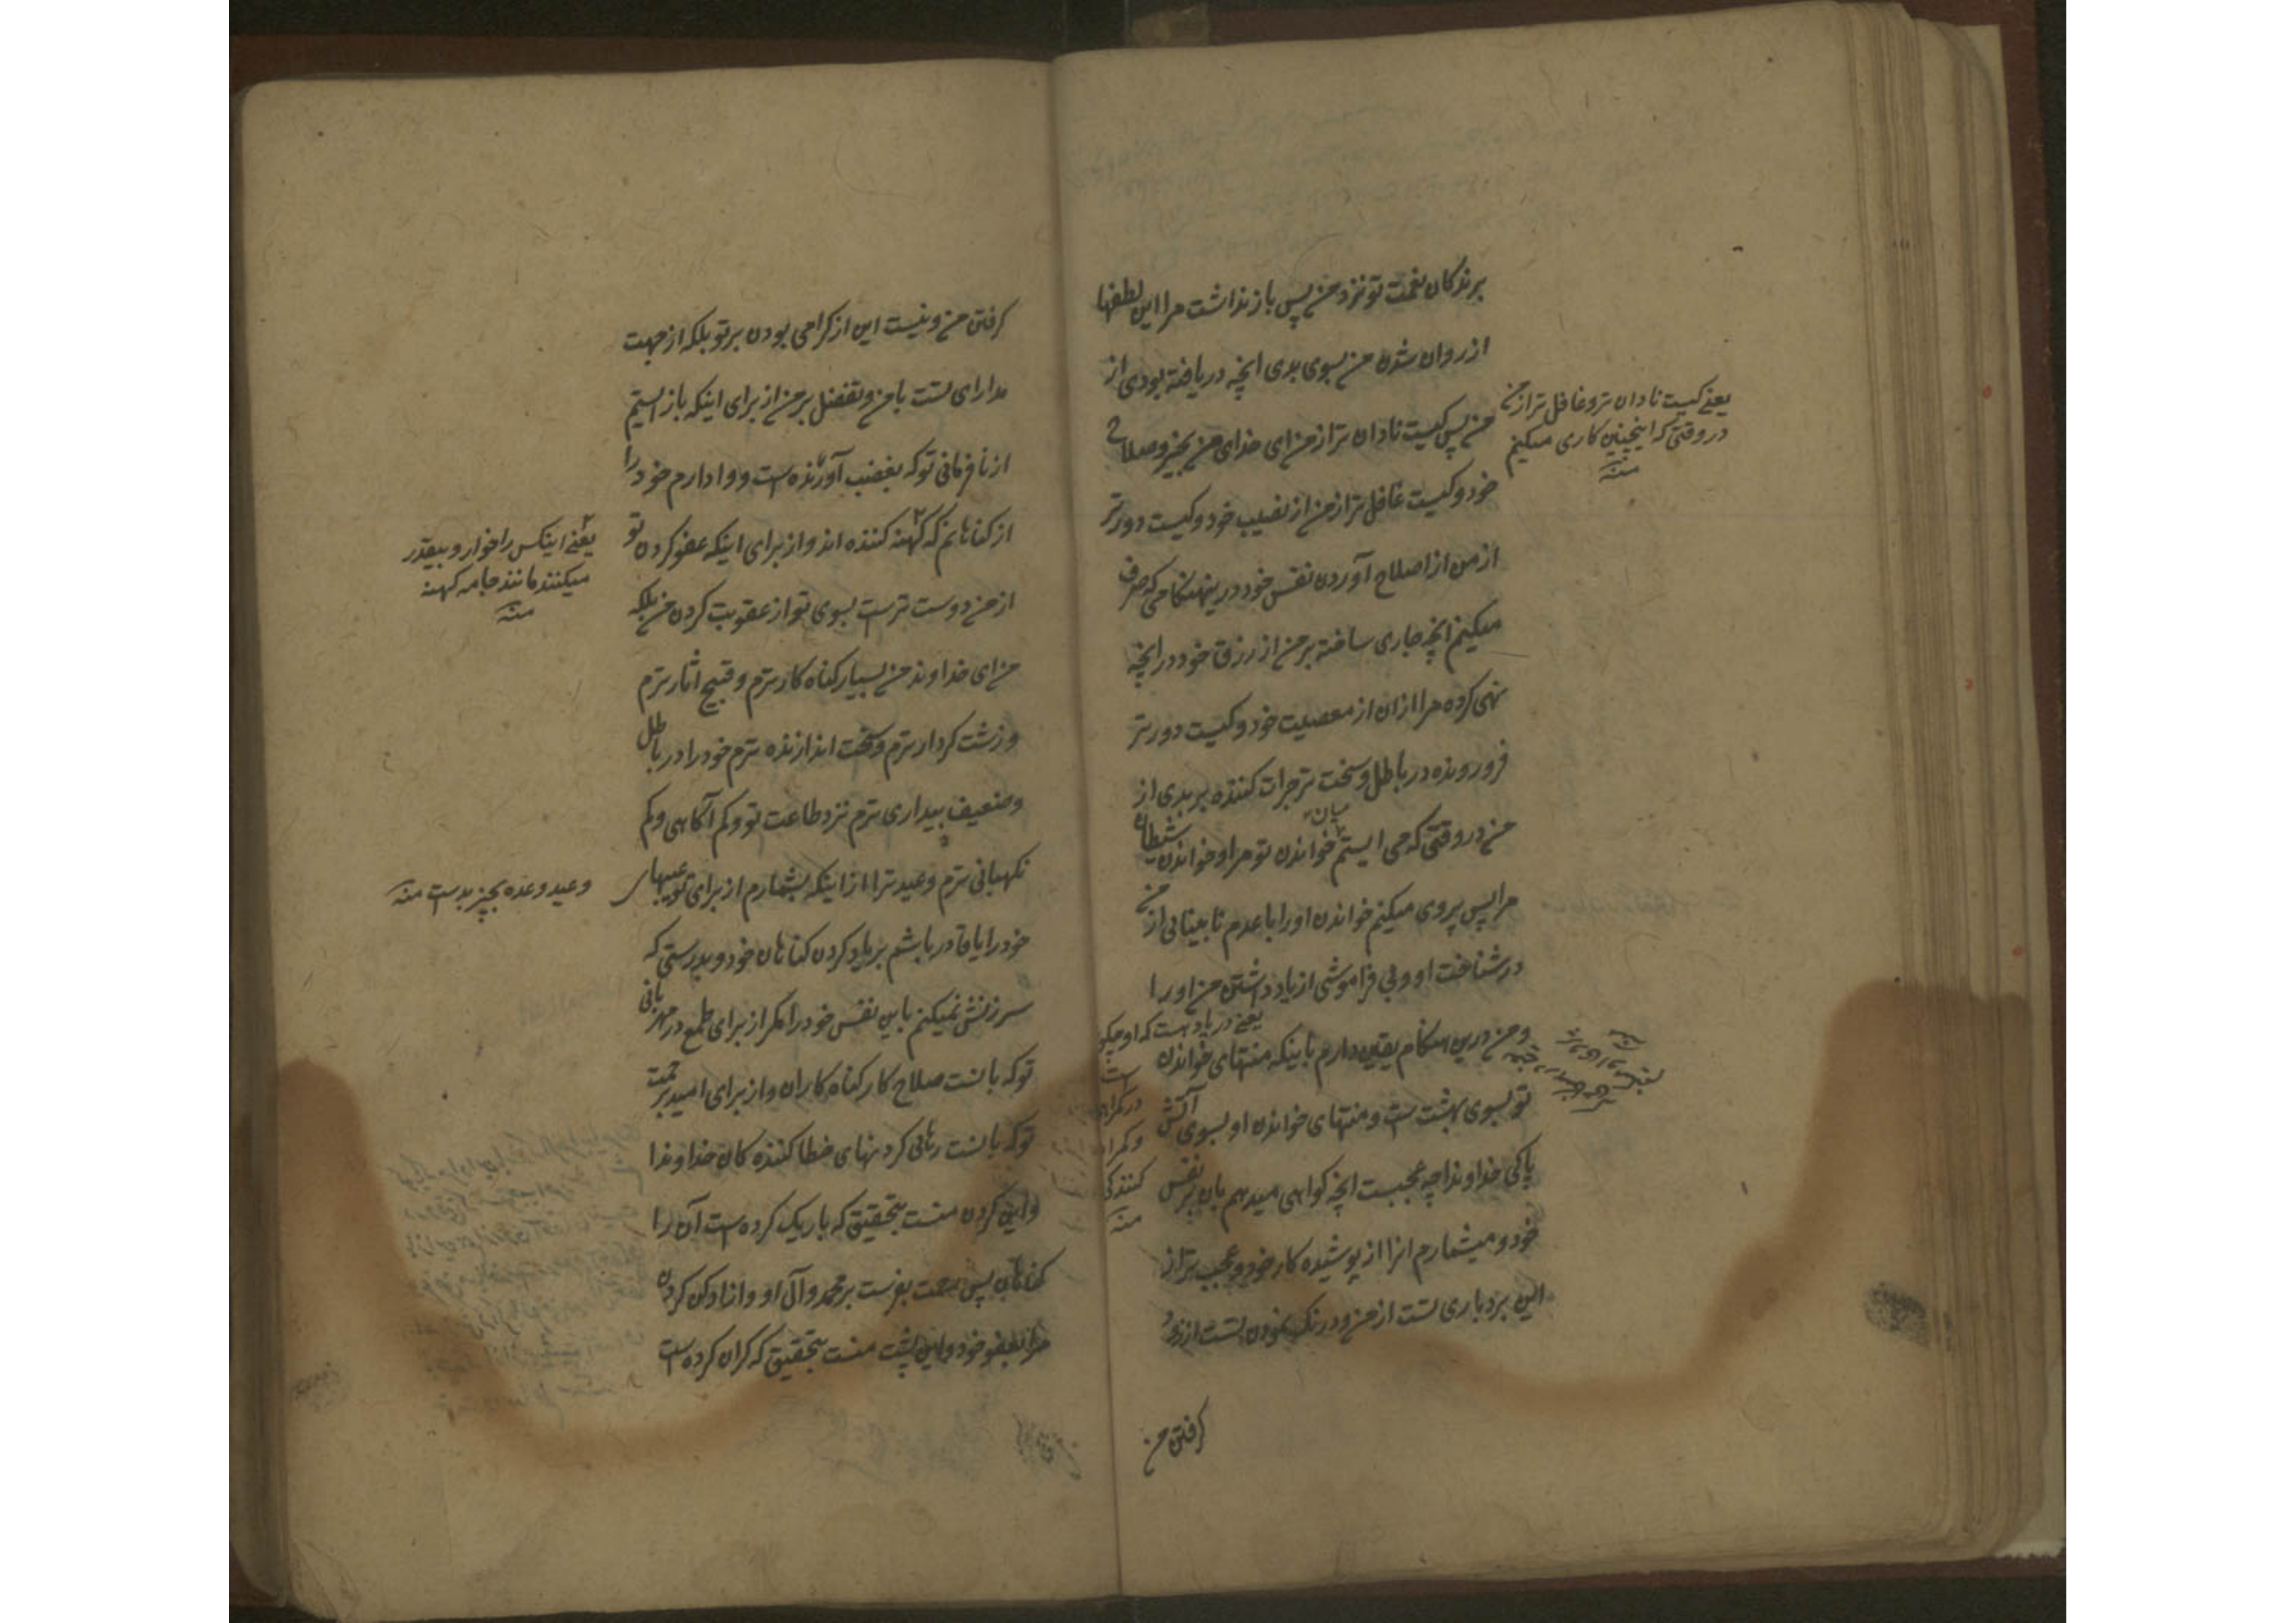 برندکان نعمت تو نزد من پس باز نداشت مرا این لطفها
از روان شدن من بسوی بدی انچه دریافته بودی از
من پس کیست نادان تر از من ای خدای من بچیز و صلاح
خود و کیست غافل تر از من از نصیب خود و کیست دورتر
از من از اصلاح آوردن نفس خود درینهنکامی که صرف
میکنم انچه جاری ساخته بر من از رزق خود در انچه
نهی کرده مرا ازان از معصیت خود و کیست دورتر
فرو رونده در باطل و سخت تر جرات کننده بر بدی از
من در وقتی که می ایستم میان خواندن تو مرا و خواندن شیطان
مرا پس پروی میکنم خواندن او را با عدم نابینائی از من
در شناخت او و بی فراموشی از یاد داشتن من او را
و من درین هنکام یقین دارم باینکه منتهای خواندن
تو بسوی بهشت ست و منتهای خواندن او بسوی آتش
پاکی خداوندا چه عجبست انچه کواهی میدهم بان بر نفس
خود و میشمارم انرا از پوشیده کار خود و عجب تر از
این بردباری تست از من و درنک نمودن تست از زود
کرفتن من
یعنی کیست نادان تر و غافل تر از من
در وقتی که اینچنین کاری میکنم
منه
یعنی در یاد هست که او چکونه
است
کنندکی
منه
کرفتن من و نیست این از کرامی بودن بر تو بلکه از جهت
مدارای تست با من و تفضل بر من از برای اینکه باز ایستم
از نافرمانی تو که بغضب آورنده است و وا دارم خود را
از کناهانم که کهنه کننده اند و از برای اینکه عفو کردن تو
از من دوست ترست بسوی تو از عقوبت کردن من بلکه
من ای خداوند من بسیار کناه کارترم و قبیح اثارترم
و زشت کردارترم و سخت اندازنده ترم خود را در باطل
و ضعیف بیداری ترم نزد طاعت تو و کم آکاهی و کم
نکهبانی ترم وعید ترا از اینکه بشمارم از برای تو عیبهای
خود را یا قادر باشم بر یاد کردن کناهان خود و بدرستی که
سرزنش نمیکنم باین نفس خود را مکر از برای طمع در مهربانی
تو که بانست صلاح کار کناه کاران و از برای امید بر رحمت
تو که بانست رهائی کردنهای خطا کننده کان خداوندا
و این کردن منست بتحقیق که باریک کرده است آن را
کناهان پس رحمت بفرست بر محمد و آل او و ازاد کن کردن
مرا بعفو خود و این پشت منست بتحقیق که کران کرده است
یعنی اینکس را خوار و بیقدر
میکنند مانند جامه کهنه
منه
وعید وعده بچیز بدست منه